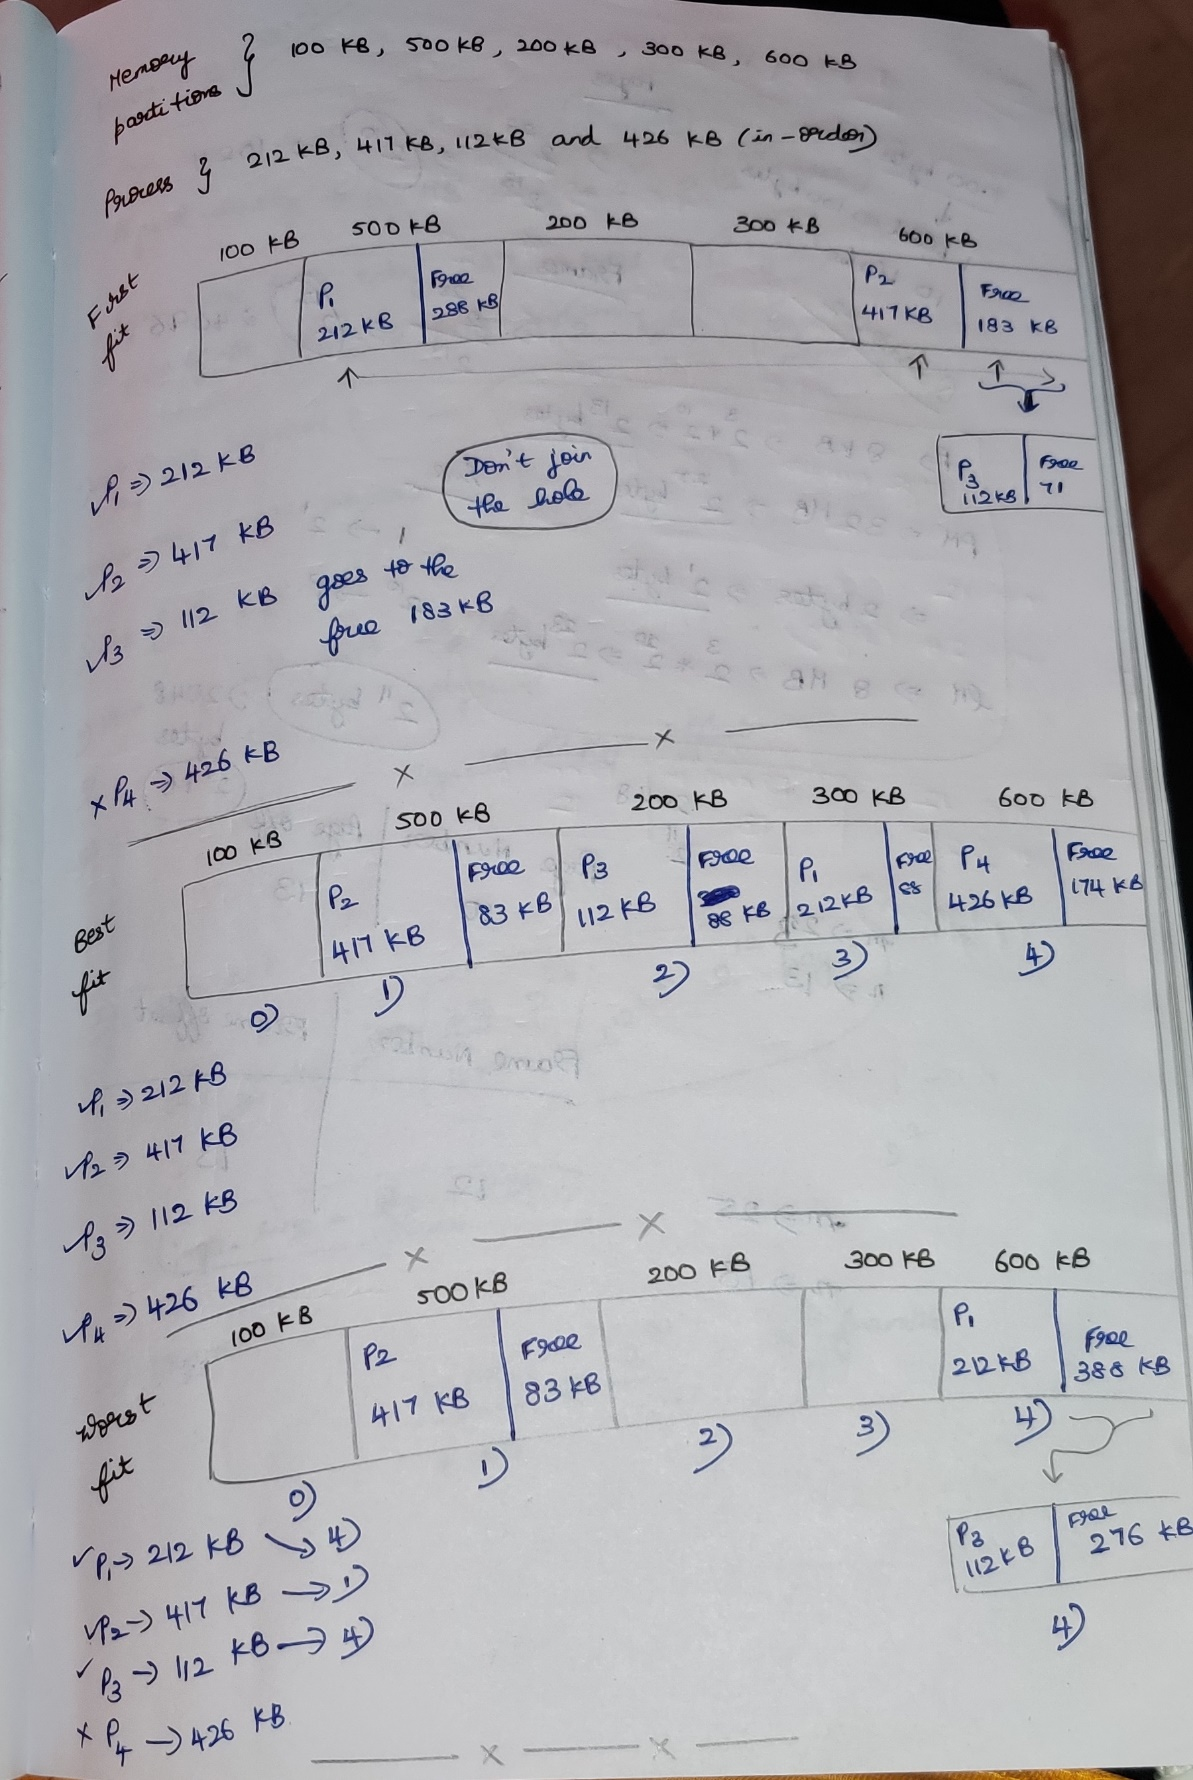 Memory partitions } 100 KB, 500 KB, 200 KB, 300 KB, 600 KB
Process } 212 KB, 417 KB, 112 KB and 426 KB (in-order)
100 KB 500 KB 200 KB 300 KB 600 KB
First fit
P1 212 KB
Free 288 KB
P2 417 KB
Free 183 KB
P3 112 KB
Free 71
Don't join
the hole
✓P1 ⇒ 212 KB
✓P2 ⇒ 417 KB
✓P3 ⇒ 112 KB goes to the
free 183 KB
x P4 ⇒ 426 KB
100 KB 500 KB 200 KB 300 KB 600 KB
Best fit
P2 417 KB
Free 83 KB
P3 112 KB
Free 88 KB
P1 212 KB
Free 88
P4 426 KB
Free 174 KB
0) 1) 2) 3) 4)
✓P1 ⇒ 212 KB
✓P2 ⇒ 417 KB
✓P3 ⇒ 112 KB
✓P4 ⇒ 426 KB
100 KB 500 KB 200 KB 300 KB 600 KB
Worst fit
P2 417 KB
Free 83 KB
P1 212 KB
Free 388 KB
0) 1) 2) 3) 4)
P3 112 KB
Free 276 KB
4)
✓P1 → 212 KB → 4)
✓P2 → 417 KB → 1)
✓P3 → 112 KB → 4)
x P4 → 426 KB